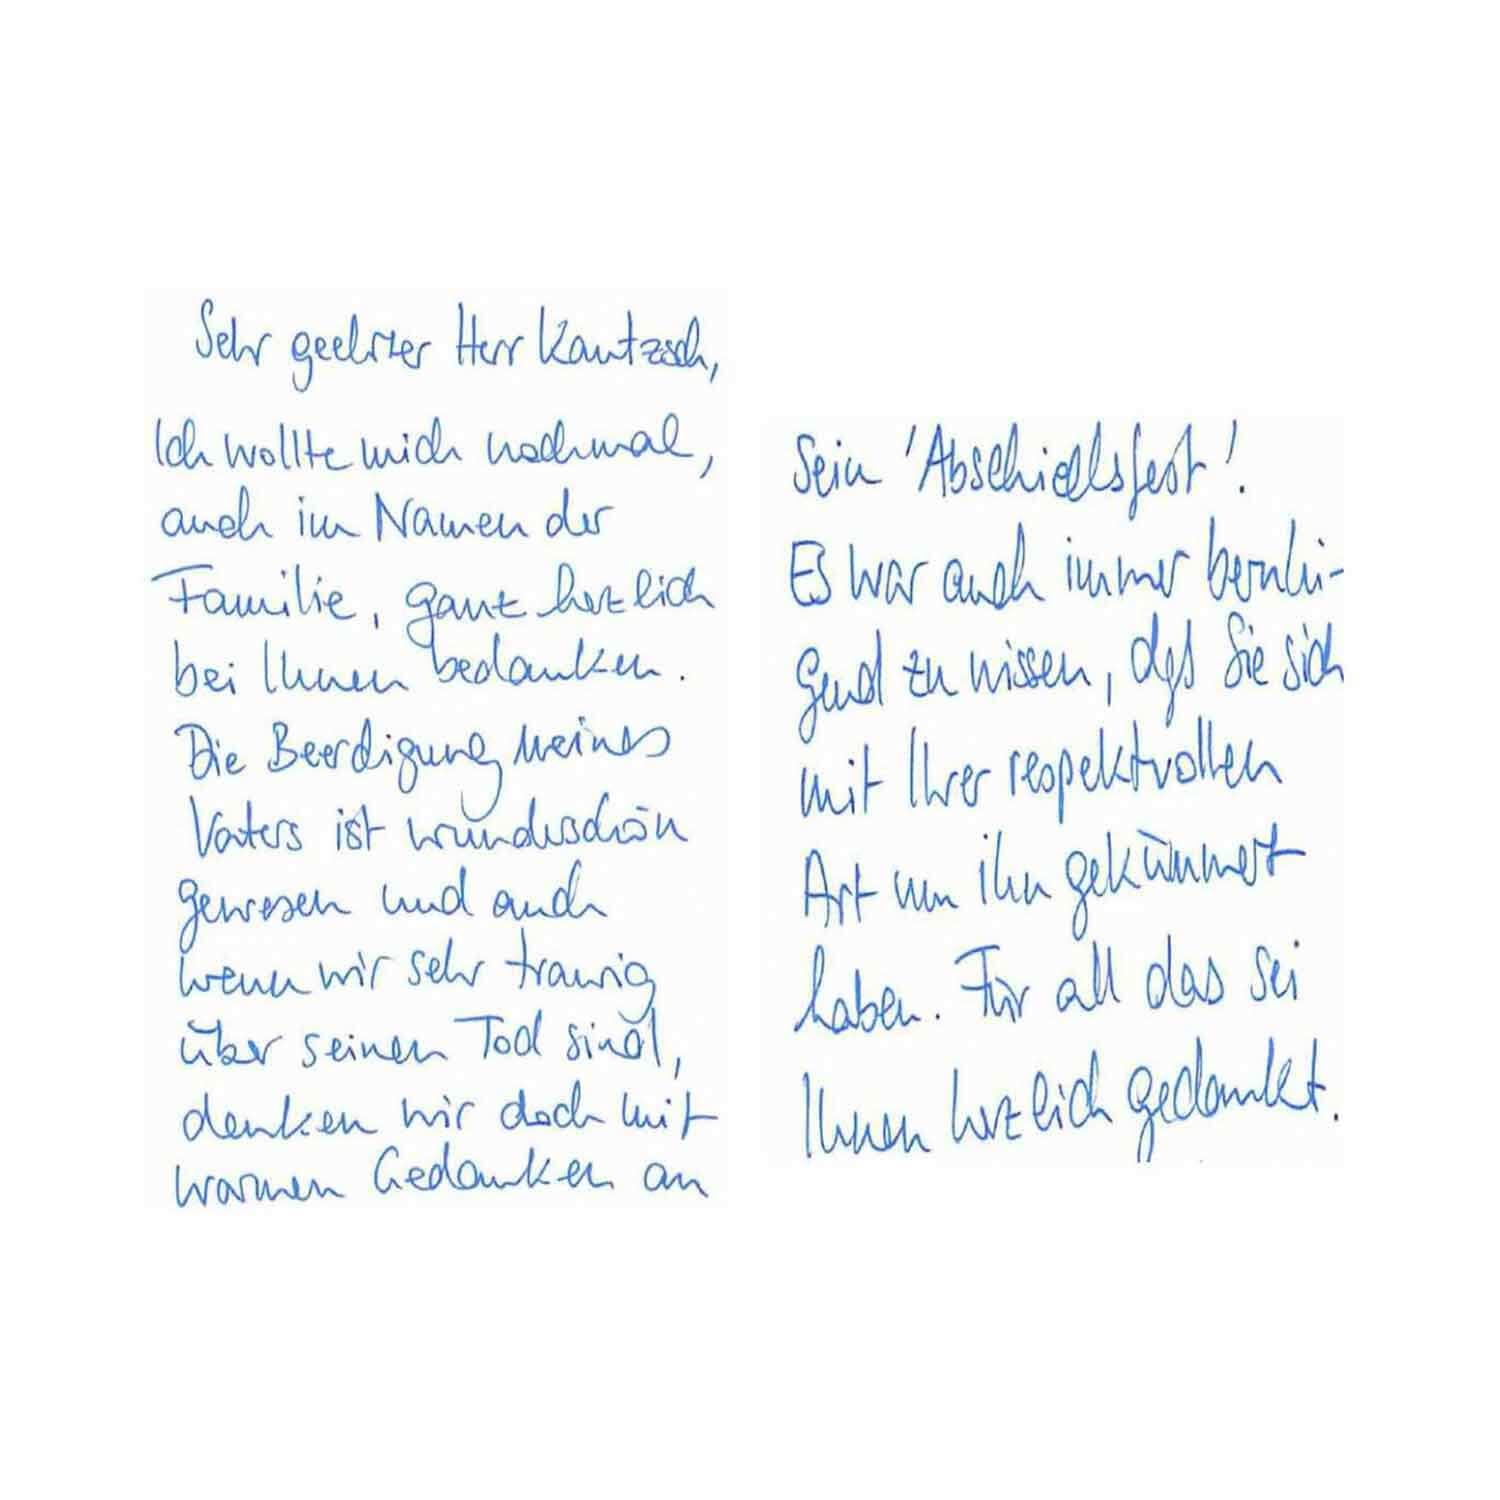 Sehr geehrter Herr Kautzsch,
Ich wollte mich nochmal,
auch im Namen der
Familie, ganz herzlich
bei Ihnen bedanken.
Die Beerdigung meines
Vaters ist wunderschön
gewesen und auch
wenn wir sehr traurig
über seinen Tod sind,
denken wir doch mit
warmen Gedanken an
Sein 'Abschiedsfest'.
Es war auch immer beruhi-
gend zu wissen, daß Sie sich
mit Ihrer respektvollen
Art um ihn gekümmert
haben. Für all das sei
Ihnen herzlich gedankt.